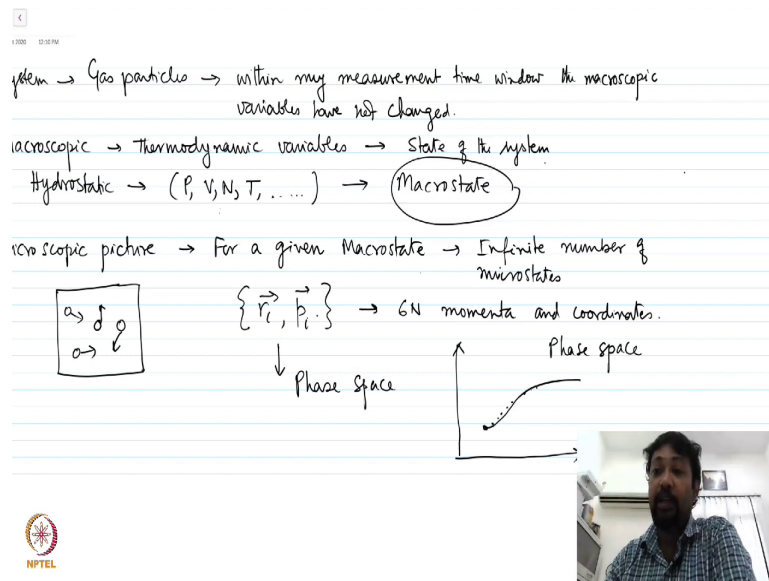 2020 12:30 PM
ystem → Gas particles → within my measurement time window the macroscopic
variables have not changed.
acroscopic → Thermodynamic variables → State of the system
Hydrostatic → (P, V, N, T, ......) → Macrostate
icroscopic picture → For a given Macrostate → Infinite number of
microstates
{ r⃗i, p⃗i. } → 6N momenta and coordinates.
Phase space
Phase space
NPTEL